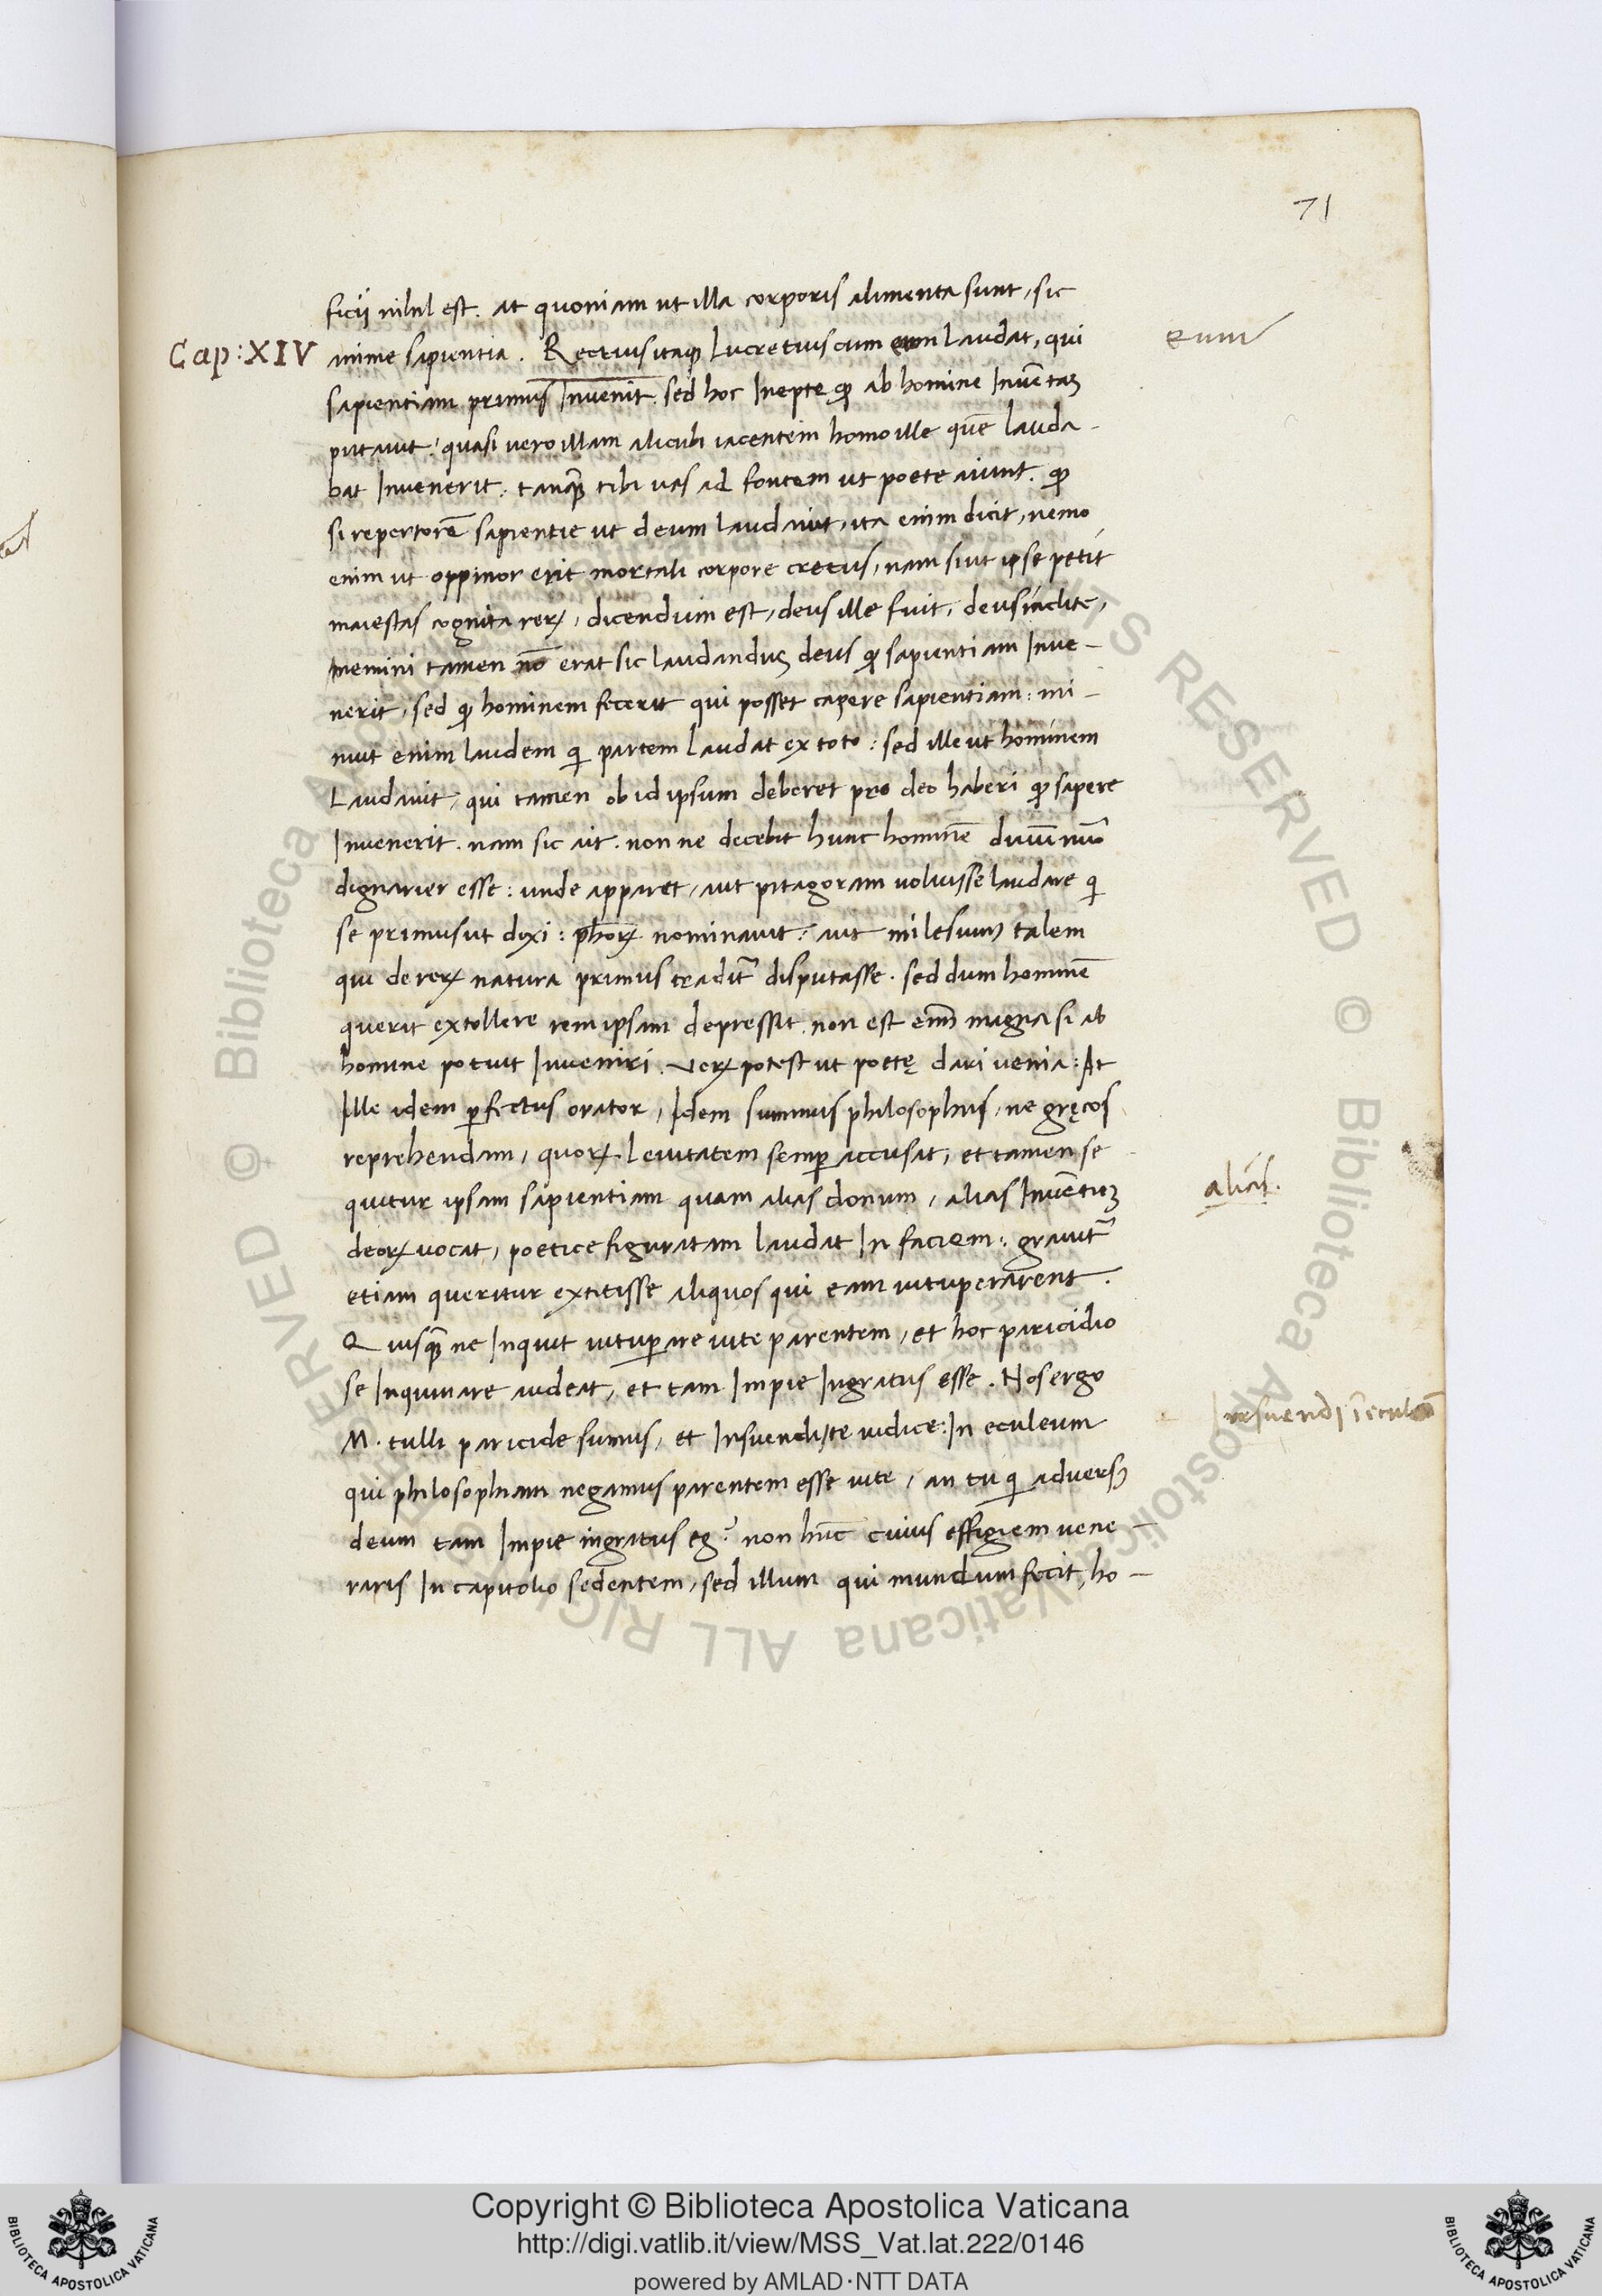 71
ficij nihil est. at quoniam ut illa corporis alimenta sunt, sic
Cap: XIV
anime sapientia. Rectius itaqȝ Lucretius cum eum laudat, qui
eum
sapientiam primus Invenit. sed hoc Inepte qđ ab homine Inuētaȝ
putauit: quasi vero illam alicubi iacentem homo ille quē lauda-
bat Invenerit: tanqȝ tibi uas ad fontem ut poete aiunt. qđ
si repertorē sapientie ut deum laudauit, ita enim dicit, nemo
enim ut oppinor erit mortali corpore cretus, nam si ut ipse petit
maiestas cognita reꝝ, dicendum est, deus ille fuit, deus inclite,
memini tamen nō erat sic laudanduȝ deus qđ sapientiam Inve-
nerit, sed qđ hominem fecerit qui posset capere sapientiam: mi-
nuit enim laudem qi partem laudat ex toto: sed ille ut hominem
Laudauit, qui tamen ob id ipsum deberet pro deo haberi qđ sapere
Invenerit. nam sic ait. non ne decebit hunc hominē diuū nūo
dignarier esse: unde apparet, aut pitagoram uoluisse laudare qi
se primus ut dixi: phōꝝ nominauit: aut milesiuȝ talem
qui de reꝝ natura primus tradit᷑ disputasse. sed dum hominē
querit extollere rem ipsam depressit. non est enī magna si ab
homine potuit Inveniri. veꝝ potest ut poetę dari venia: At
Ille idem ꝑfectus orator, Idem summus philosophus, ne gręcos
reprehendam, quoꝝ leuitatem semꝑ accusat, et tamen se
quitur ipsam sapientiam quam alias donum, alias Inuētuȝ
aliās.
deoꝝ vocat, poetice figuratam laudat In faciem: grauit᷑
etiam queritur extitisse aliquos qui eam uituperarent.
Quisqȝ ne Inquit uituꝑare uite parentem, et hoc paricidio
se Inquinare audeat, et tam Impie Ingratus esse. Nos ergo
M. tulli paricide sumus, et Insuendi te iudice: In eculeum
insuendi ī eculeū
qui philosophiam negamus parentem esse uite, an tu qi aduersȝ
deum tam Impie ingratus eȝ? non hūc cuius effigiem vene-
raris In capitolio sedentem, sed illum qui mundum fecit, ho-
© Biblioteca Apostolica Vaticana ALL RIGHTS RESERVED
Copyright © Biblioteca Apostolica Vaticana
http://digi.vatlib.it/view/MSS_Vat.lat.222/0146
powered by AMLAD·NTT DATA
BIBLIOTECA APOSTOLICA VATICANA
BIBLIOTECA APOSTOLICA VATICANA